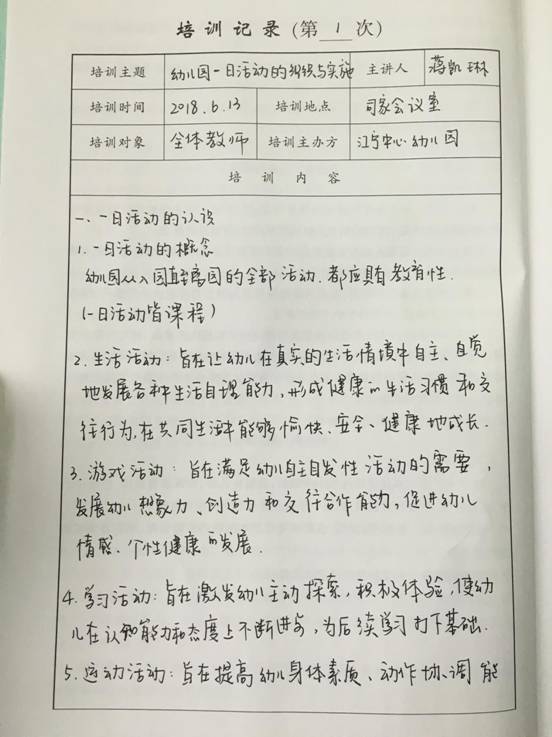 培训记录(第 1 次)
培训主题 幼儿园一日活动的组织与实施 主讲人 蒋凯琳
培训时间 2018.6.13 培训地点 司家会议室
培训对象 全体教师 培训主办方 江宁中心幼儿园
培 训 内 容
一、一日活动的认识
1. 一日活动的概念
幼儿园从入园直至离园的全部活动.都应具有教育性.
(一日活动皆课程)
2. 生活活动:旨在让幼儿在真实的生活情境中自主、自觉
地发展各种生活自理能力,形成健康的生活习惯和交
往行为,在共同生活中能够愉快、安全、健康地成长.
3. 游戏活动:旨在满足幼儿自主自发性活动的需要,
发展幼儿想象力、创造力和交往合作能力,促进幼儿
情感、个性健康的发展.
4. 学习活动:旨在激发幼儿主动探索,积极体验,使幼
儿在认知能力和态度上不断进步,为后续学习打下基础.
5. 运动活动:旨在提高幼儿身体素质、动作协调能